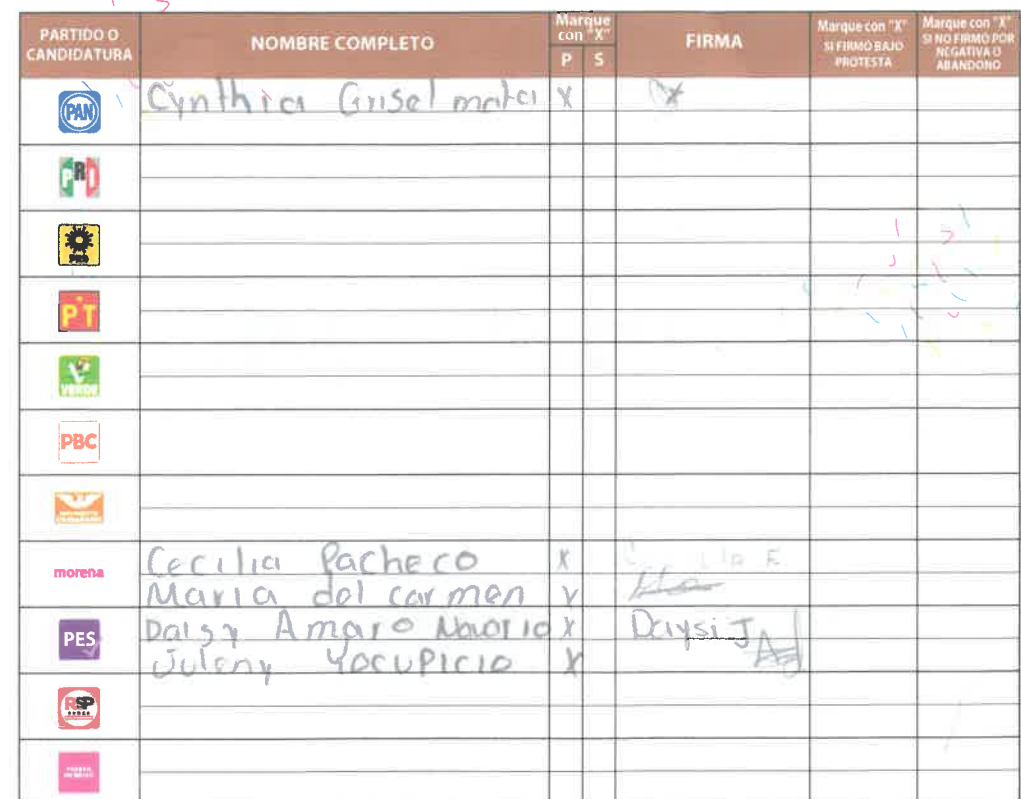 PARTIDO O CANDIDATURA
NOMBRE COMPLETO
Marque con "X"
P S
FIRMA
Marque con "X" SI FIRMÓ BAJO PROTESTA
Marque con "X" SI NO FIRMÓ POR NEGATIVA O ABANDONO
PAN Cynthia Grisel mata X
PRI
PRD
PT
VERDE
PBC
morena Cecilia Pacheco X
Maria del carmen
PES Daisy Amaro X Daysi J
Juleny Yocupicio X
RSP